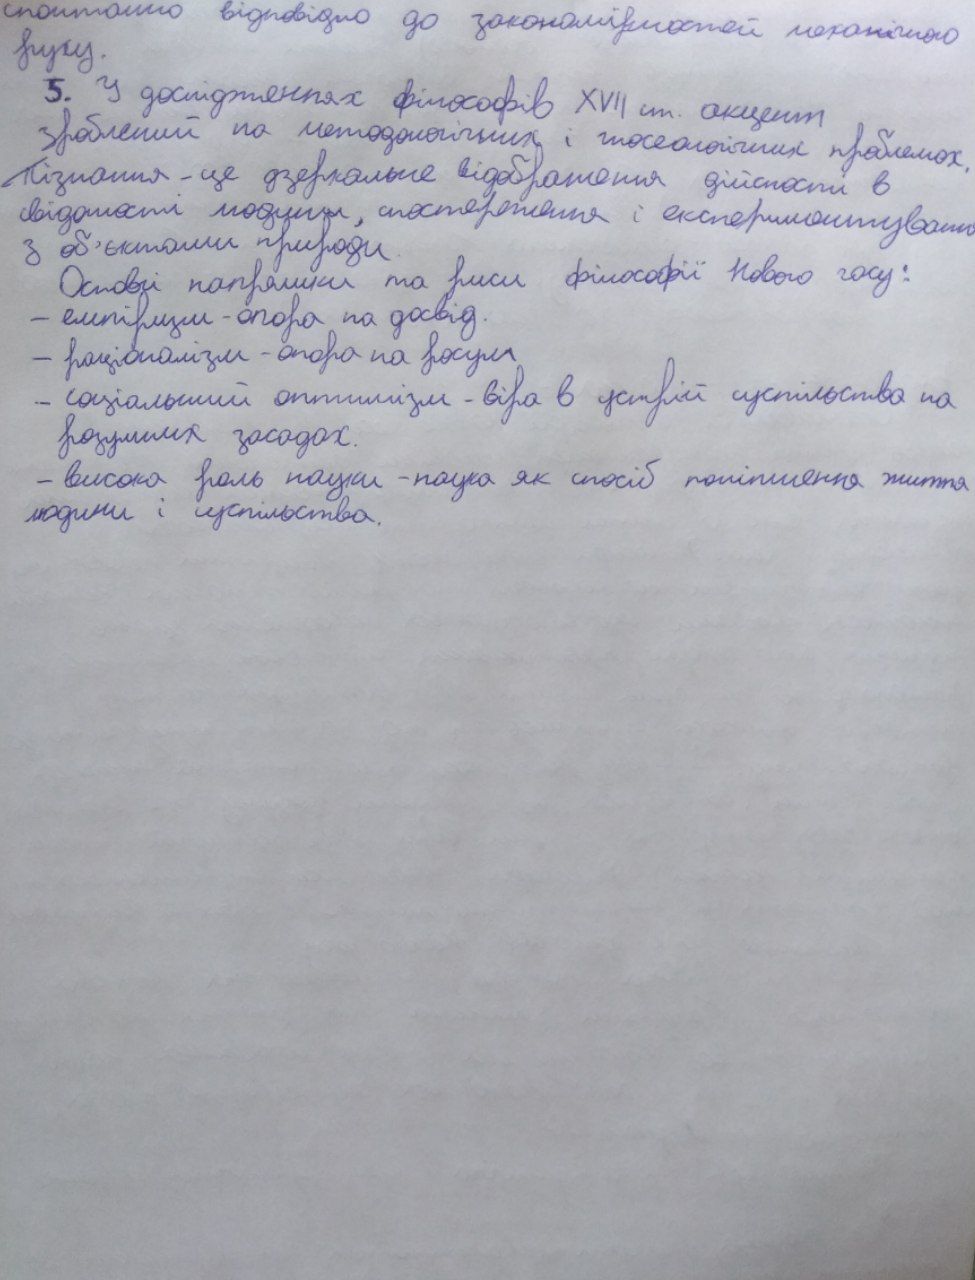 спонтанно відповідно до закономірностей механічного
руху.
5. У дослідженнях філософів XVII ст. акцент
зроблений на методологічних і гносеологічних проблемах.
Пізнання - це дзеркальне відображення дійсності в
свідомості людини, спостереження і експериментування
з об'єктами природи.
Основі напрямки та риси філософії Нового часу:
- емпіризм - опора на досвід.
- раціоналізм - опора на розум
- соціальний оптимізм - віра в устрій суспільства на
розумних засадах.
- висока роль науки - наука як спосіб поліпшення життя
людини і суспільства.